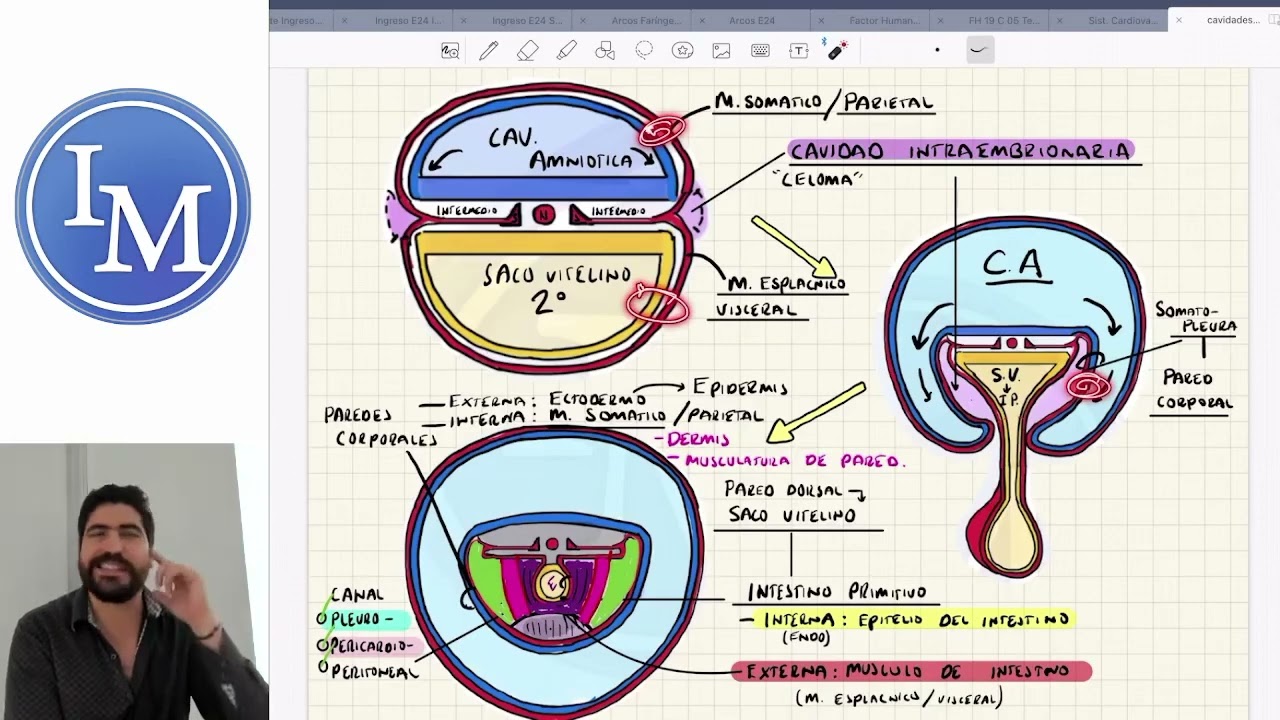 Ingreso...
Ingreso E24 I...
Ingreso E24 S...
Arcos Farínge...
Arcos E24
Factor Human...
FH 19 C 05 Te...
Sist. Cardiova...
cavidades...
IM
CAV.
AMNIOTICA
M. SOMATICO / PARIETAL
CAVIDAD INTRAEMBRIONARIA
"CELOMA"
INTERMEDIO N INTERMEDIO
SACO VITELINO
2°
M. ESPLACNICO
VISCERAL
C.A
S.V.
I.P.
SOMATO-
PLEURA
PARED
CORPORAL
PAREDES
CORPORALES
EXTERNA: ECTODERMO → EPIDERMIS
INTERNA: M. SOMATICO / PARIETAL
- DERMIS
- MUSCULATURA DE PARED.
PARED DORSAL
SACO VITELINO
INTESTINO PRIMITIVO
- INTERNA: EPITELIO DEL INTESTINO
(ENDO)
EXTERNA: MUSCULO DE INTESTINO
(M. ESPLACNICO / VISCERAL)
CANAL
PLEURO-
PERICARDIO-
PERITONEAL